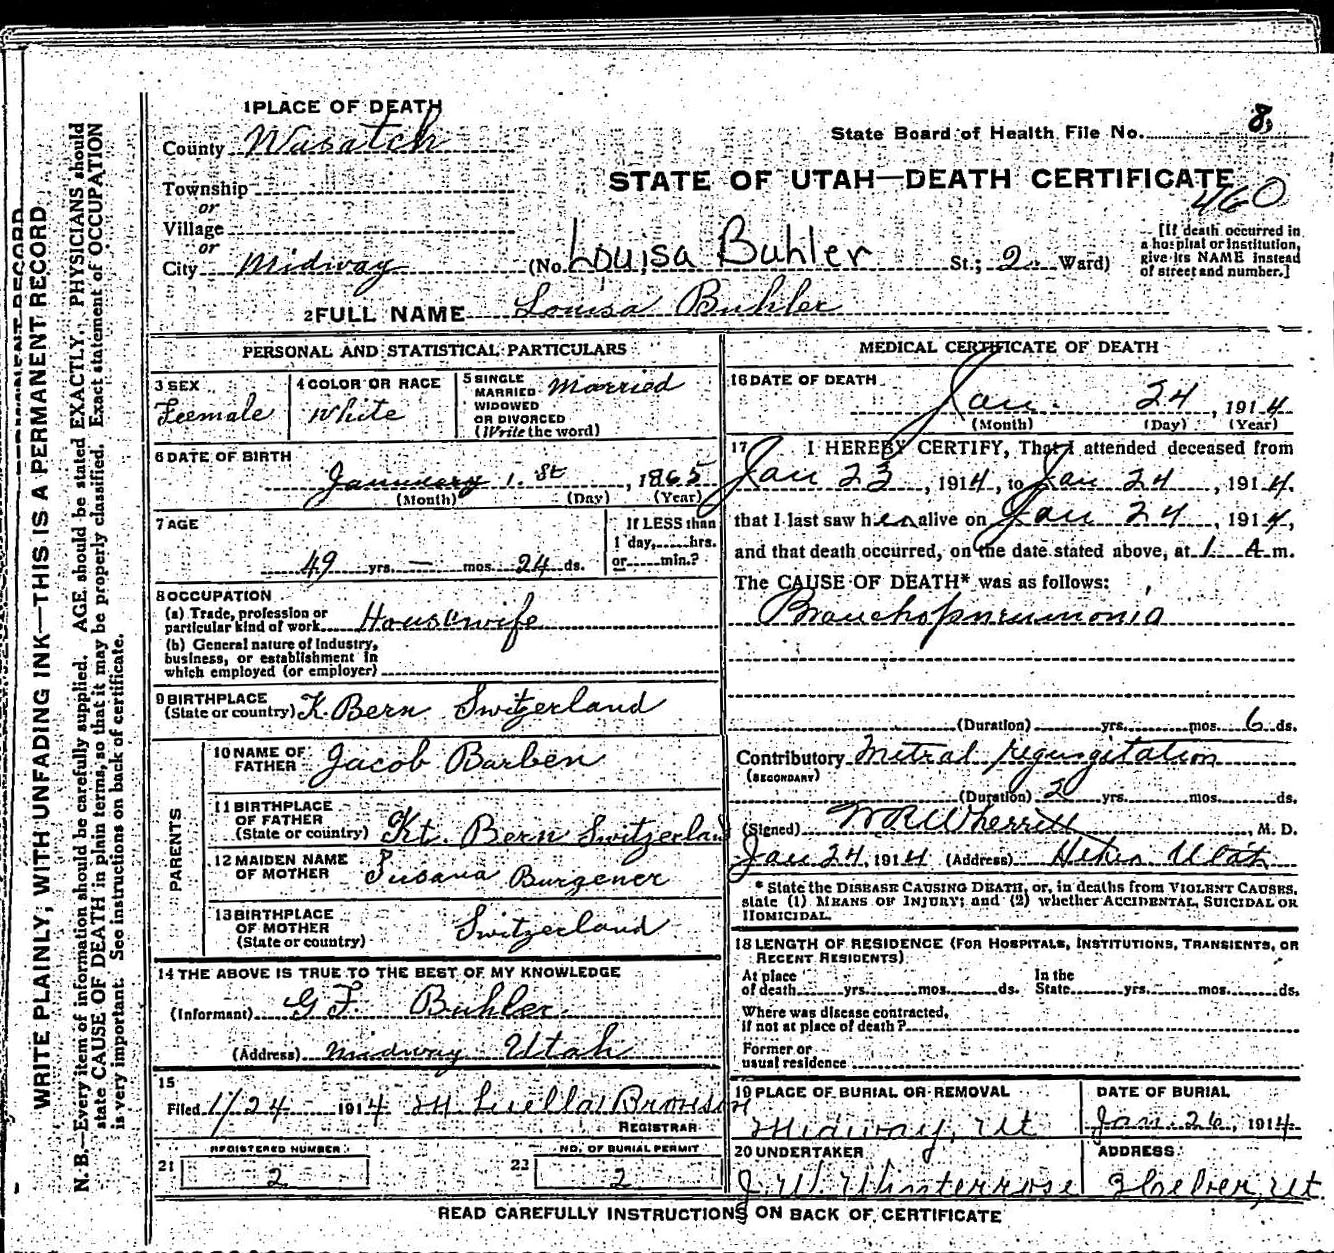 1 PLACE OF DEATH
County Wasatch
State Board of Health File No. 8
Township
or
Village
or
City Midway
STATE OF UTAH—DEATH CERTIFICATE
460
(No. Louisa Buhler St.; 2 Ward)
[If death occurred in
a hospital or institution,
give its NAME instead
of street and number.]
2 FULL NAME Louisa Buhler
PERSONAL AND STATISTICAL PARTICULARS
3 SEX
Feemale
4 COLOR OR RACE
White
5 SINGLE
MARRIED
WIDOWED
OR DIVORCED
(Write the word)
Married
6 DATE OF BIRTH
January 1. St, 1865
(Month) (Day) (Year)
7 AGE
49 yrs. — mos. 24 ds.
If LESS than
1 day, hrs.
or min.?
8 OCCUPATION
(a) Trade, profession or
particular kind of work Housewife
(b) General nature of industry,
business, or establishment in
which employed (or employer)
9 BIRTHPLACE
(State or country) K. Bern Switzerland
PARENTS
10 NAME OF
FATHER Jacob Barben
11 BIRTHPLACE
OF FATHER
(State or country) Kt. Bern Switzerland
12 MAIDEN NAME
OF MOTHER Susana Burgener
13 BIRTHPLACE
OF MOTHER
(State or country) Switzerland
14 THE ABOVE IS TRUE TO THE BEST OF MY KNOWLEDGE
(Informant) G F. Buhler.
(Address) Midway Utah
15
Filed 1/24 1914 M. Luella Bronson
REGISTRAR
REGISTERED NUMBER
21 2
NO. OF BURIAL PERMIT
22 2
MEDICAL CERTIFICATE OF DEATH
16 DATE OF DEATH
Jan. 24, 1914
(Month) (Day) (Year)
17 I HEREBY CERTIFY, That I attended deceased from
Jan 23, 1914, to Jan 24, 1914.
that I last saw her alive on Jan 24, 1914,
and that death occurred, on the date stated above, at 1 A m.
The CAUSE OF DEATH* was as follows:
Bronchopneumonia
(Duration) yrs. mos. 6 ds.
Contributory Mitral regurgitation
(SECONDARY)
(Duration) 2 yrs. mos. ds.
(Signed) W R Wherritt, M. D.
Jan 24, 1914 (Address) Heber Utah
* State the DISEASE CAUSING DEATH, or, in deaths from VIOLENT CAUSES,
state (1) MEANS OF INJURY; and (2) whether ACCIDENTAL, SUICIDAL OR
HOMICIDAL.
18 LENGTH OF RESIDENCE (FOR HOSPITALS, INSTITUTIONS, TRANSIENTS, OR
RECENT RESIDENTS)
At place
of death yrs. mos. ds.
In the
State yrs. mos. ds.
Where was disease contracted,
if not at place of death?
Former or
usual residence
19 PLACE OF BURIAL OR REMOVAL
Midway, Ut
DATE OF BURIAL
Jan. 26, 1914
20 UNDERTAKER
J. W. Winterrose
ADDRESS
Heber, Ut.
READ CAREFULLY INSTRUCTIONS ON BACK OF CERTIFICATE
WRITE PLAINLY, WITH UNFADING INK—THIS IS A PERMANENT RECORD
N. B.—Every item of information should be carefully supplied. AGE should be stated EXACTLY. PHYSICIANS should
state CAUSE OF DEATH in plain terms, so that it may be properly classified. Exact statement of OCCUPATION
is very important. See instructions on back of certificate.